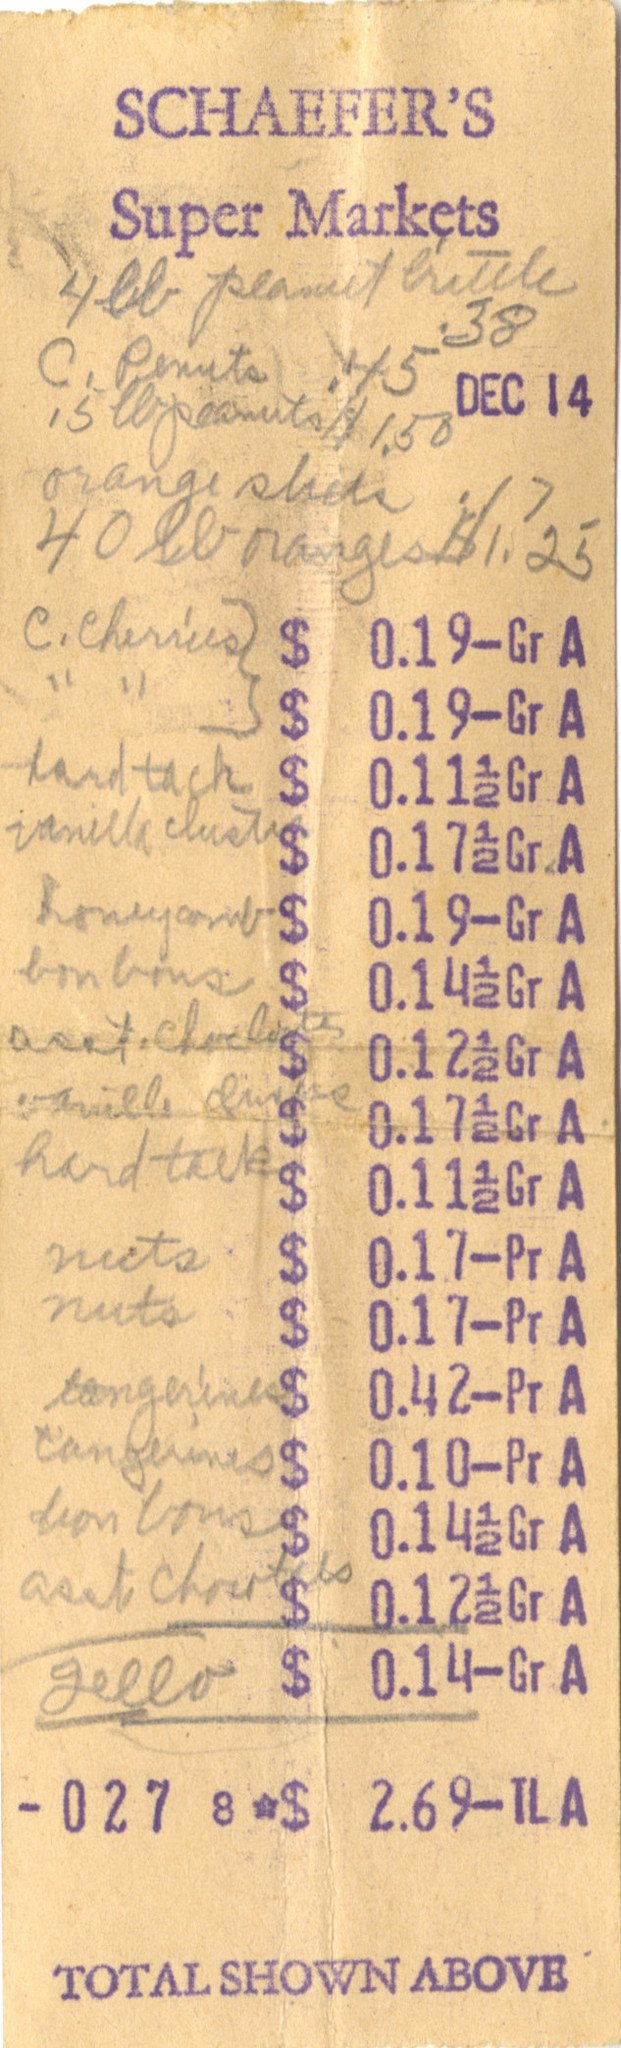 SCHAEFER'S
Super Markets
4 lb peanut brittle
.38
C. Penuts .45
DEC 14
15 lb peanuts $1.50
orange .17
40 lb oranges $1.25
C. Cherries } $ 0.19-Gr A
" " } $ 0.19-Gr A
hard tack $ 0.11½ Gr A
vanilla cluster $ 0.17½ Gr A
honeycomb $ 0.19-Gr A
bon bons $ 0.14½ Gr A
asst. $ 0.12½ Gr A
vanilla $ 0.17½ Gr A
hard tack $ 0.11½ Gr A
nuts $ 0.17-Pr A
nuts $ 0.17-Pr A
tangerines $ 0.42-Pr A
tangerines $ 0.10-Pr A
bon bons $ 0.14½ Gr A
asst $ 0.12½ Gr A
Jello $ 0.14-Gr A
-027 8 ☆$ 2.69-TL A
TOTAL SHOWN ABOVE